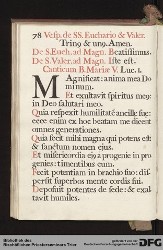 78 Vesp. de SS. Euchario & Valer.
Trino & ung. Amen.
De S. Euch. ad Magn. Beatissimus.
De S. Valer. ad Magn. Iste est.
Canticum B. Mariæ V. Luc. 1.
Magnificat: anima mea Dominum.
Et exultavit spiritus meus: in Deo salutari meo.
Quia respexit humilitatē ancillæ suæ: ecce enim ex hoc beatam me dicent omnes generationes.
Quia fecit mihi magna qui potens est: & sanctum nomen ejus.
Et misericordia ejus a progenie in progenies: timentibus eum.
Fecit potentiam in brachio suo: dispersit superbos mente cordis sui.
Deposuit potentes de sede: & exaltavit humiles.
Bibliothek des
Bischöflichen Priesterseminars Trier
DFG